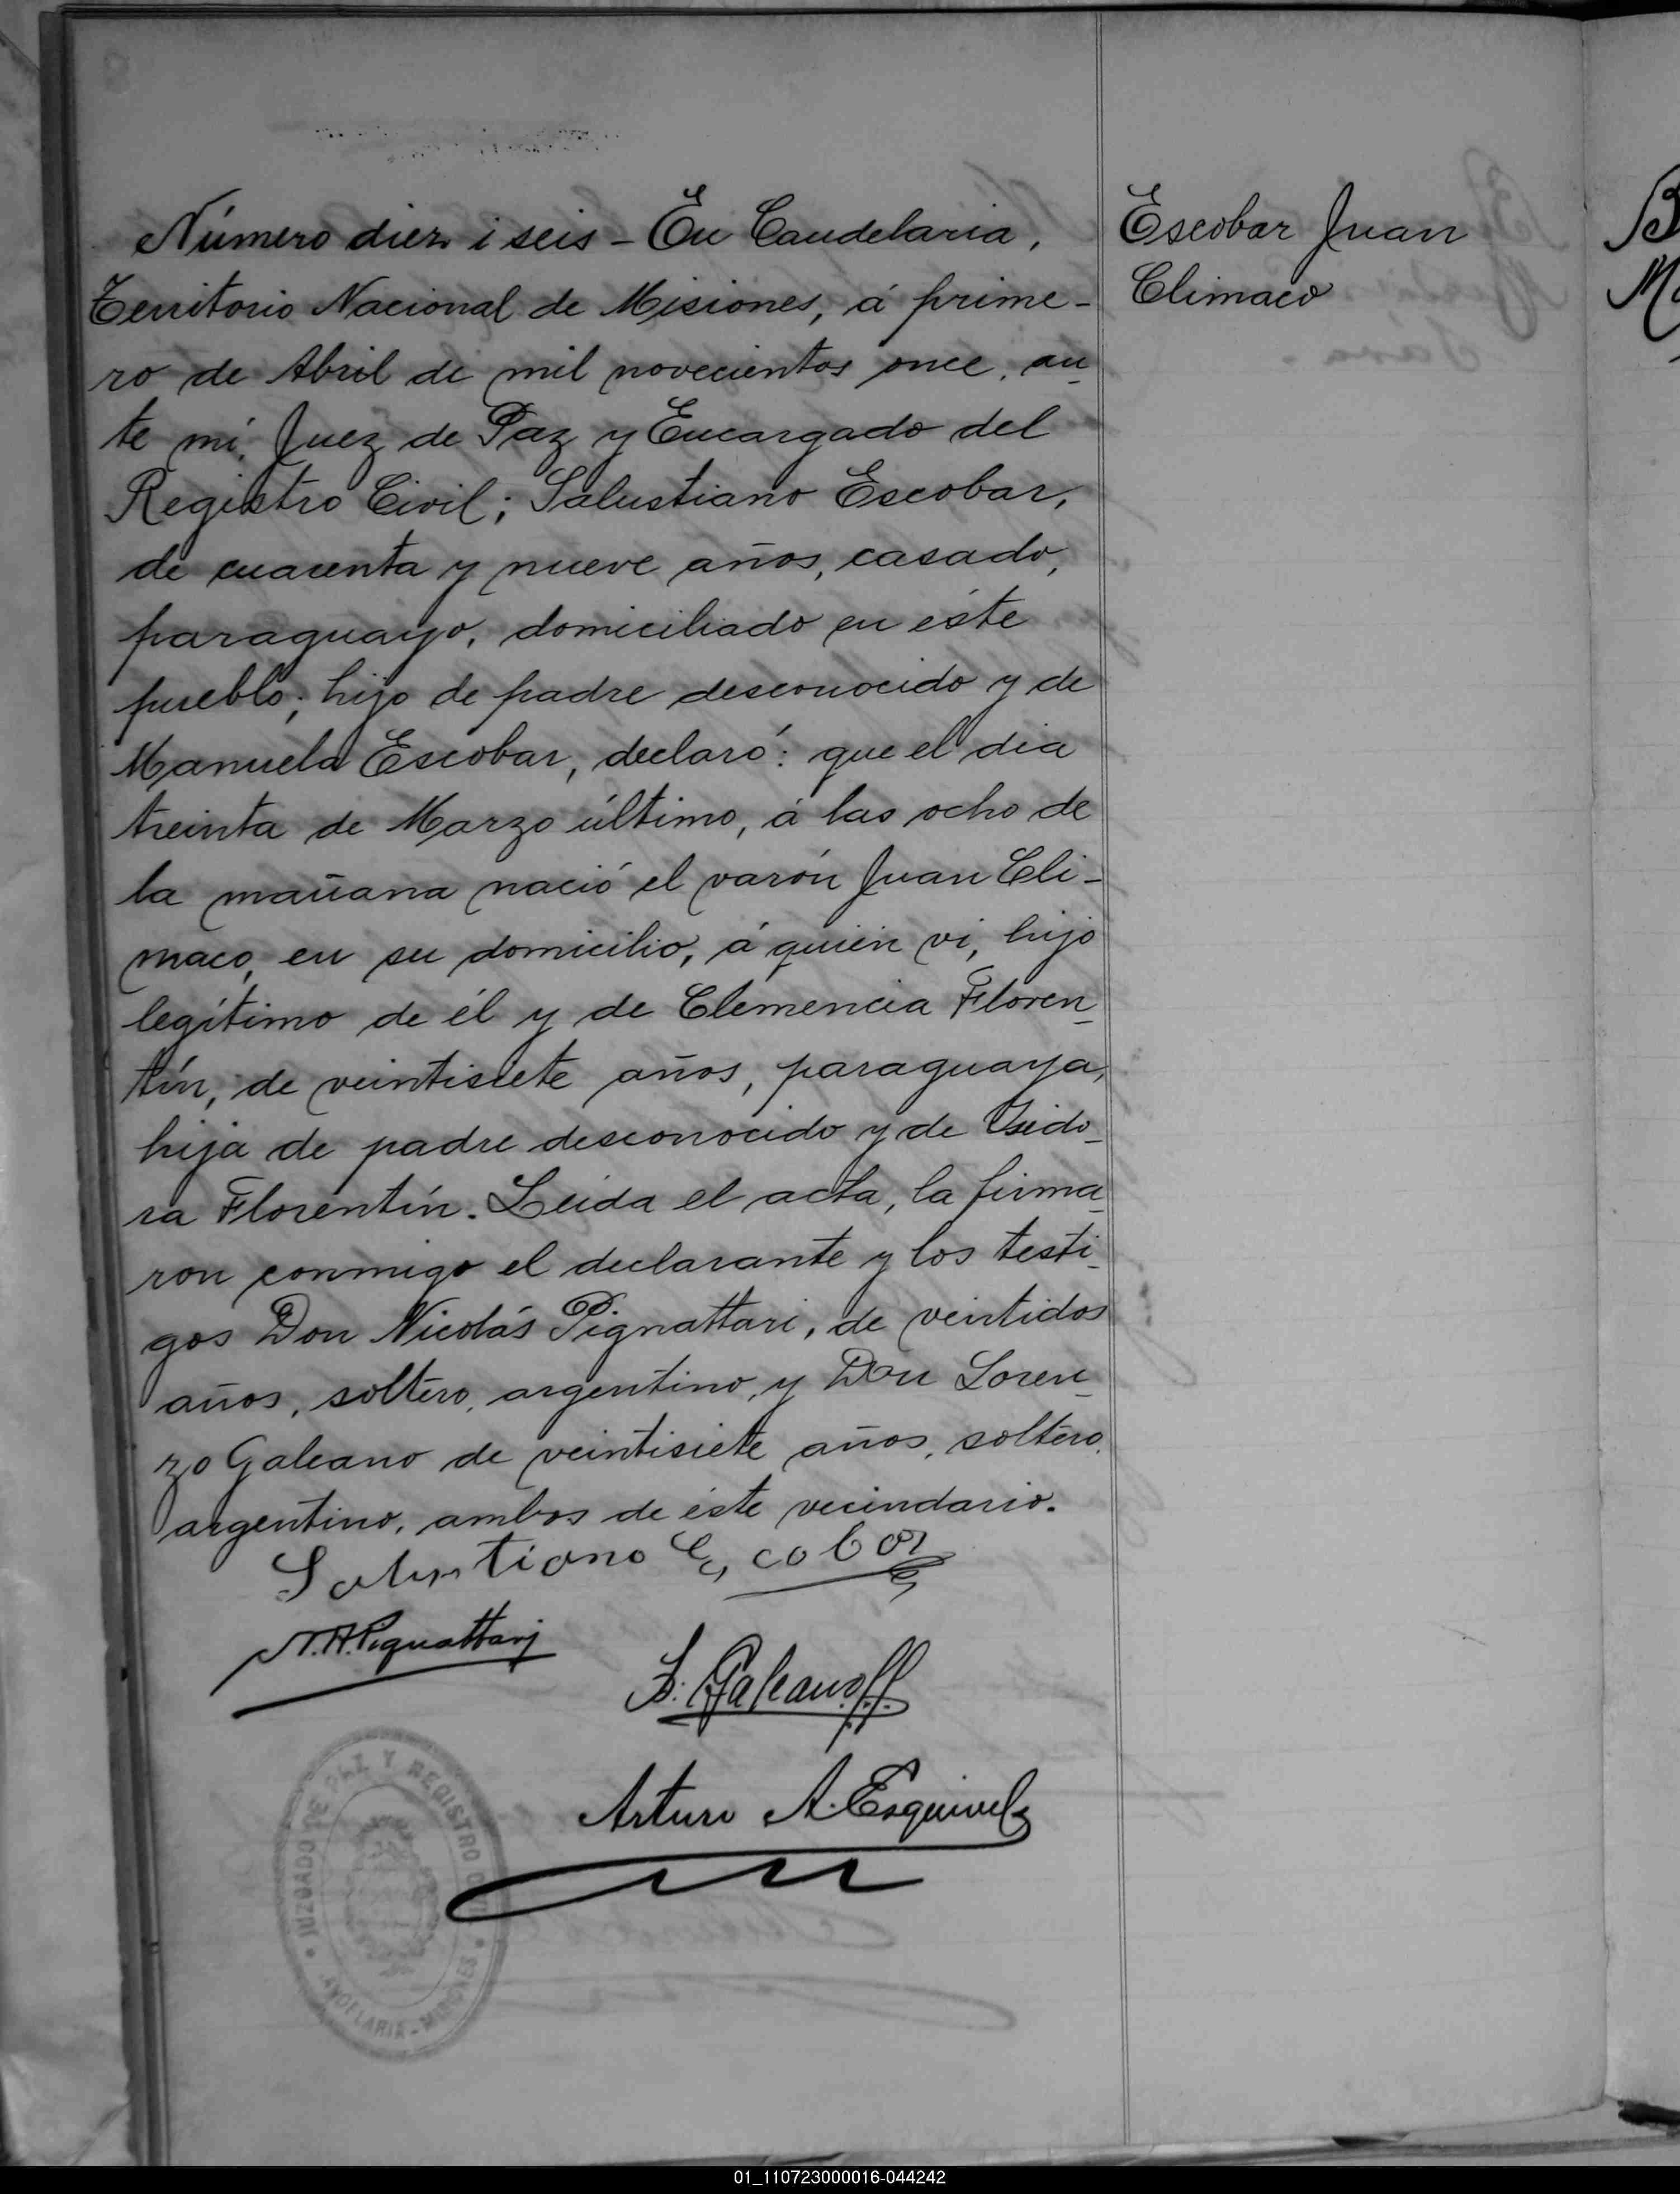 Número diez i seis - En Candelaria,
Territorio Nacional de Misiones, á prime-
ro de Abril de mil novecientos once, an-
te mí, Juez de Paz y Encargado del
Registro Civil; Salustiano Escobar,
de cuarenta y nueve años, casado,
paraguayo, domiciliado en éste
pueblo; hijo de padre desconocido y de
Manuela Escobar, declaró: que el dia
treinta de Marzo último, á las ocho de
la mañana nació el varón Juan Cli-
maco, en su domicilio, á quién ví, hijo
legítimo de él y de Clemencia Floren-
tín, de veintisiete años, paraguaya,
hija de padre desconocido y de Isido-
ra Florentín. Leida el acta, la firma-
ron conmigo el declarante y los testi-
gos Don Nicolás Pignattari, de veintidos
años, soltero, argentino, y Don Loren-
zo Galeano de veintisiete años, soltero,
argentino, ambos de éste vecindario.
Salustiano Escobar
N. A. Pignattari
L. Galeano
Arturo A. Esquivel
JUZGADO DE PAZ Y REGISTRO CIVIL
CANDELARIA - MISIONES
Escobar Juan
Climaco
01_110723000016-044242